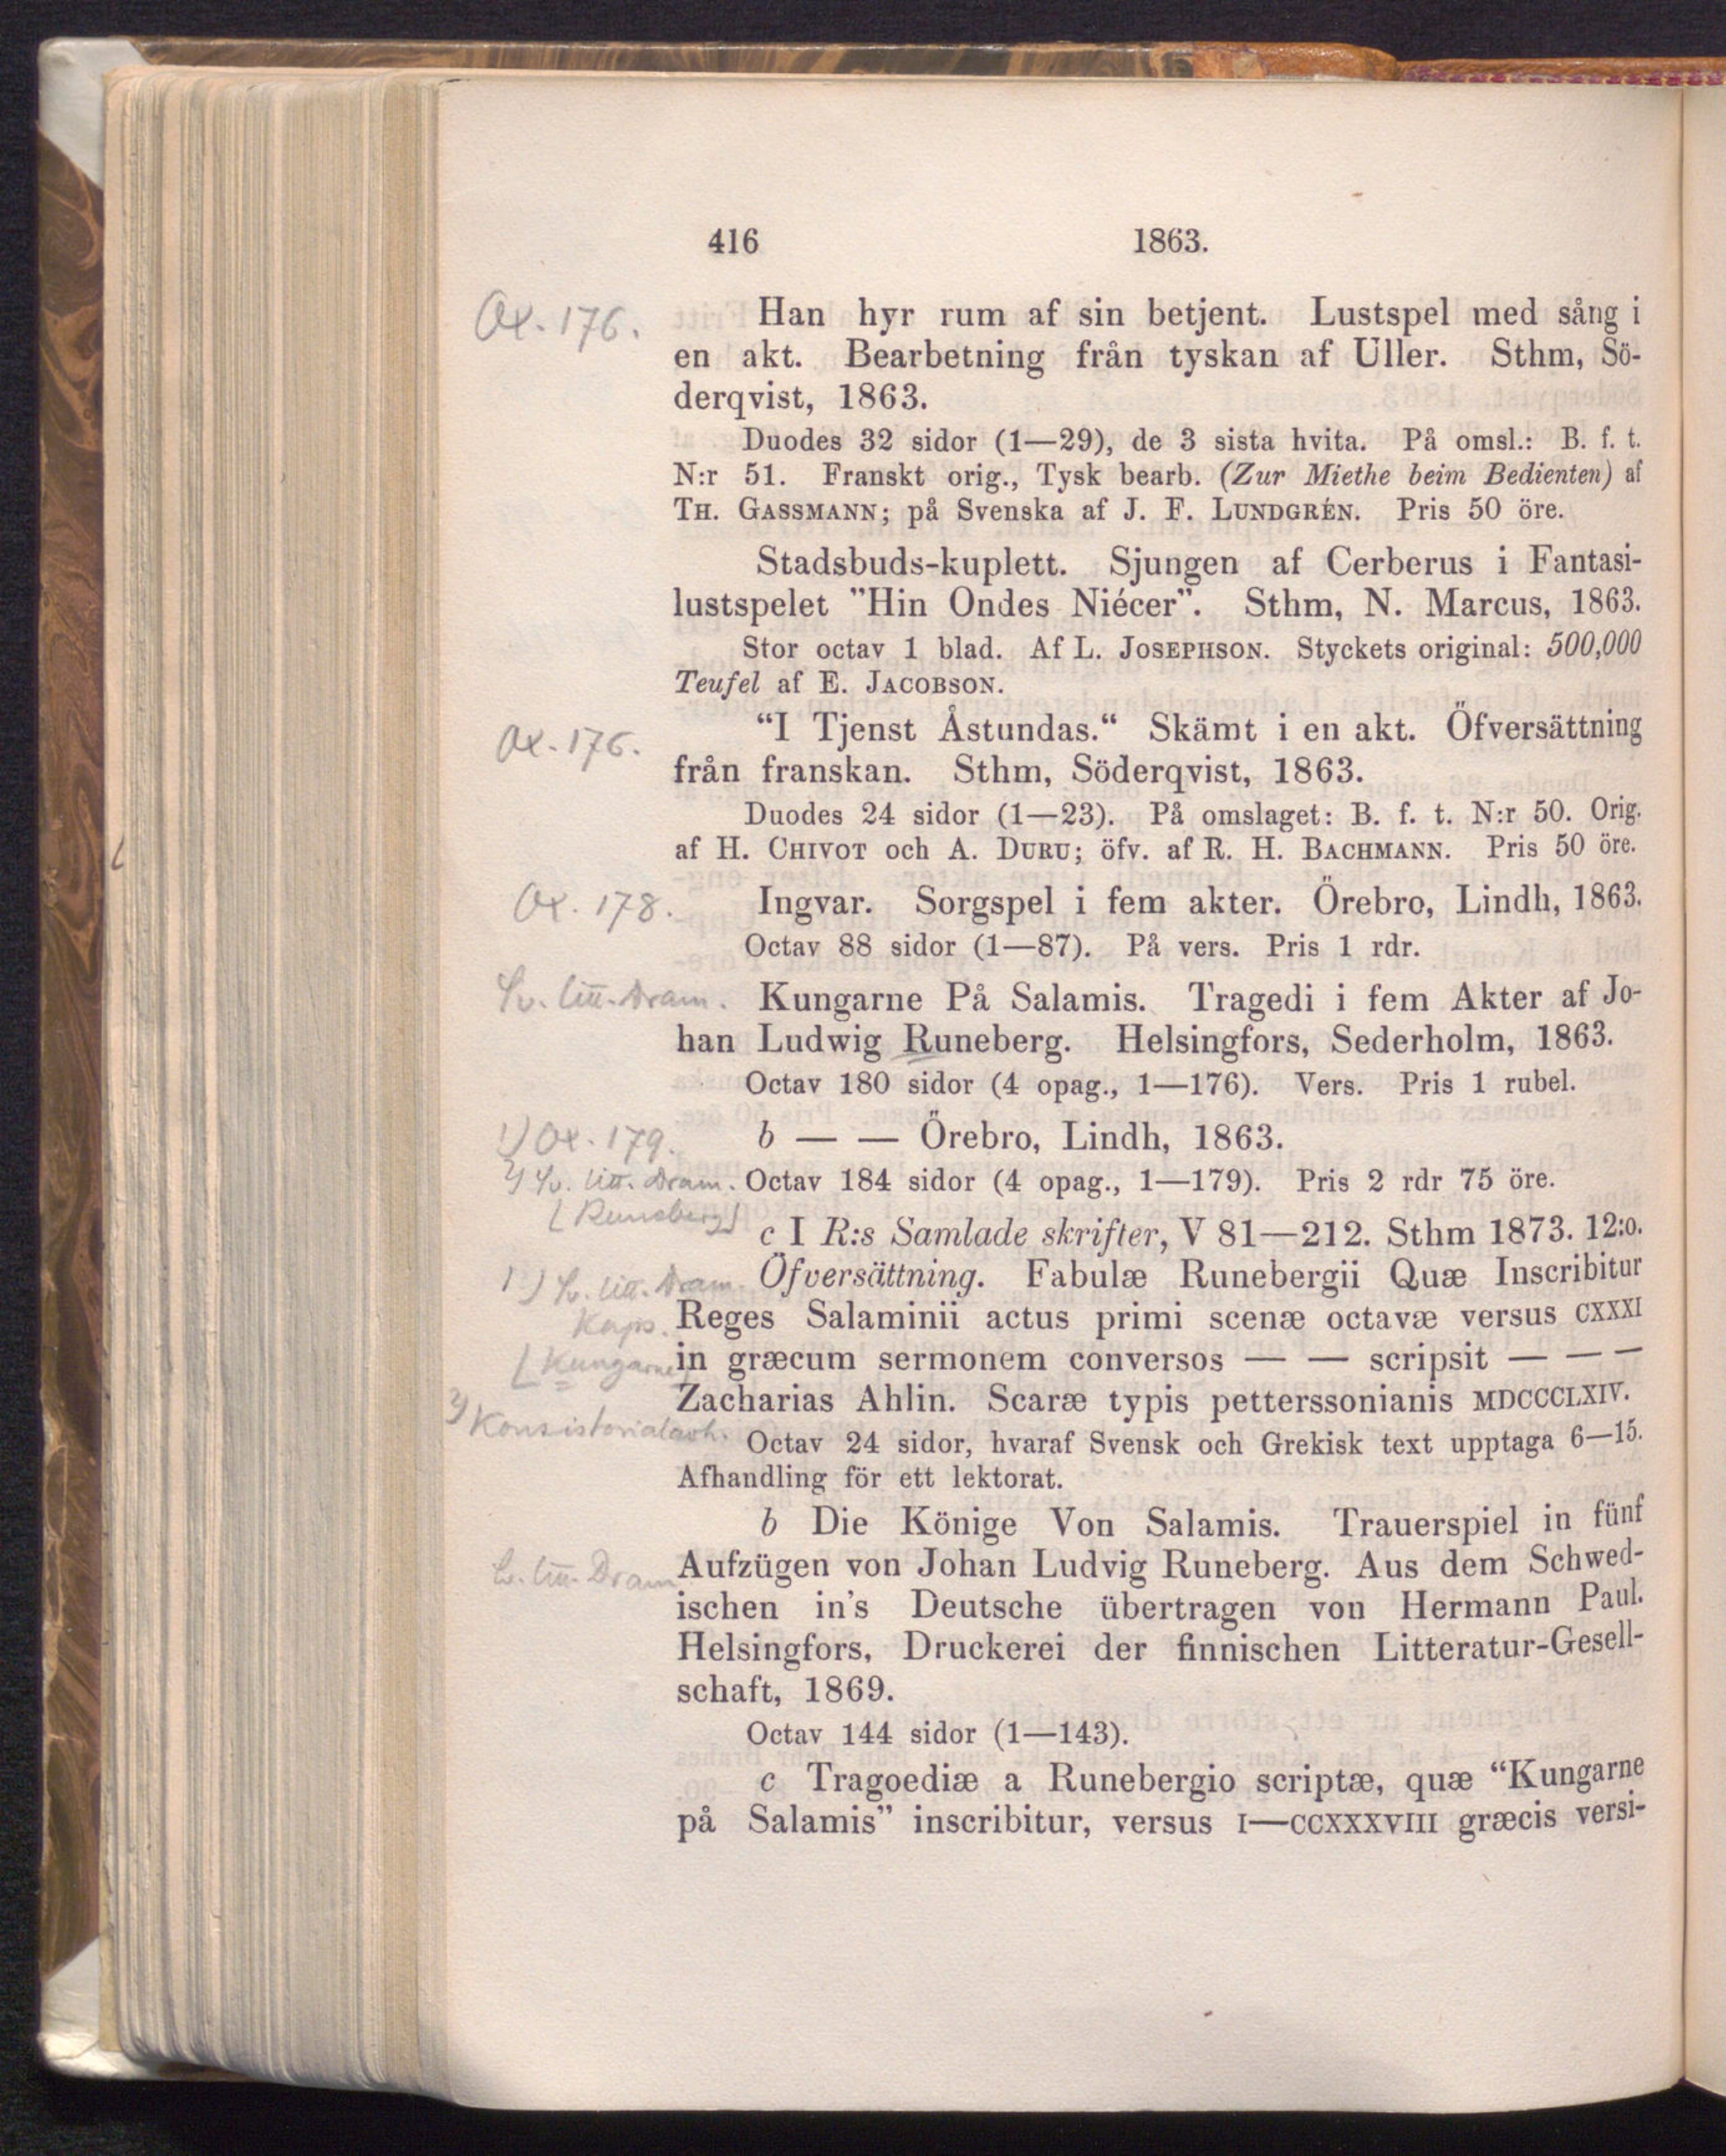 416 1863.
Ox. 176.
Han hyr rum af sin betjent. Lustspel med sång i
en akt. Bearbetning från tyskan af Uller. Sthm, Sö-
derqvist, 1863.
Duodes 32 sidor (1—29), de 3 sista hvita. På omsl.: B. f. t.
N:r 51. Franskt orig., Tysk bearb. (Zur Miethe beim Bedienten) af
TH. GASSMANN; på Svenska af J. F. LUNDGRÉN. Pris 50 öre.
Stadsbuds-kuplett. Sjungen af Cerberus i Fantasi-
lustspelet ”Hin Ondes Niécer”. Sthm, N. Marcus, 1863.
Stor octav 1 blad. Af L. JOSEPHSON. Styckets original: 500,000
Teufel af E. JACOBSON.
Ox. 176.
“I Tjenst Åstundas.“ Skämt i en akt. Öfversättning
från franskan. Sthm, Söderqvist, 1863.
Duodes 24 sidor (1—23). På omslaget: B. f. t. N:r 50. Orig.
af H. CHIVOT och A. DURU; öfv. af R. H. BACHMANN. Pris 50 öre.
Ox. 178.
Ingvar. Sorgspel i fem akter. Örebro, Lindh, 1863.
Octav 88 sidor (1—87). På vers. Pris 1 rdr.
Sv. litt. Dram.
Kungarne På Salamis. Tragedi i fem Akter af Jo-
han Ludwig Runeberg. Helsingfors, Sederholm, 1863.
Octav 180 sidor (4 opag., 1—176). Vers. Pris 1 rubel.
1) Ox. 179.
b — — Örebro, Lindh, 1863.
2) Sv. litt. Dram.
Octav 184 sidor (4 opag., 1—179). Pris 2 rdr 75 öre.
[Runeberg]
c I R:s Samlade skrifter, V 81—212. Sthm 1873. 12:o.
1) Sv. litt. Dram.
Öfversättning. Fabulæ Runebergii Quæ Inscribitur
Kaps.
Reges Salaminii actus primi scenæ octavæ versus CXXXI
[Kungarne]
in græcum sermonem conversos — — scripsit — — —
Zacharias Ahlin. Scaræ typis petterssonianis MDCCCLXIV.
2) Konsistorialavh.
Octav 24 sidor, hvaraf Svensk och Grekisk text upptaga 6—15.
Afhandling för ett lektorat.
b Die Könige Von Salamis. Trauerspiel in fünf
Sv. litt. Dram
Aufzügen von Johan Ludvig Runeberg. Aus dem Schwed-
ischen in's Deutsche übertragen von Hermann Paul.
Helsingfors, Druckerei der finnischen Litteratur-Gesell-
schaft, 1869.
Octav 144 sidor (1—143).
c Tragoediæ a Runebergio scriptæ, quæ “Kungarne
på Salamis” inscribitur, versus I—CCXXXVIII græcis versi-